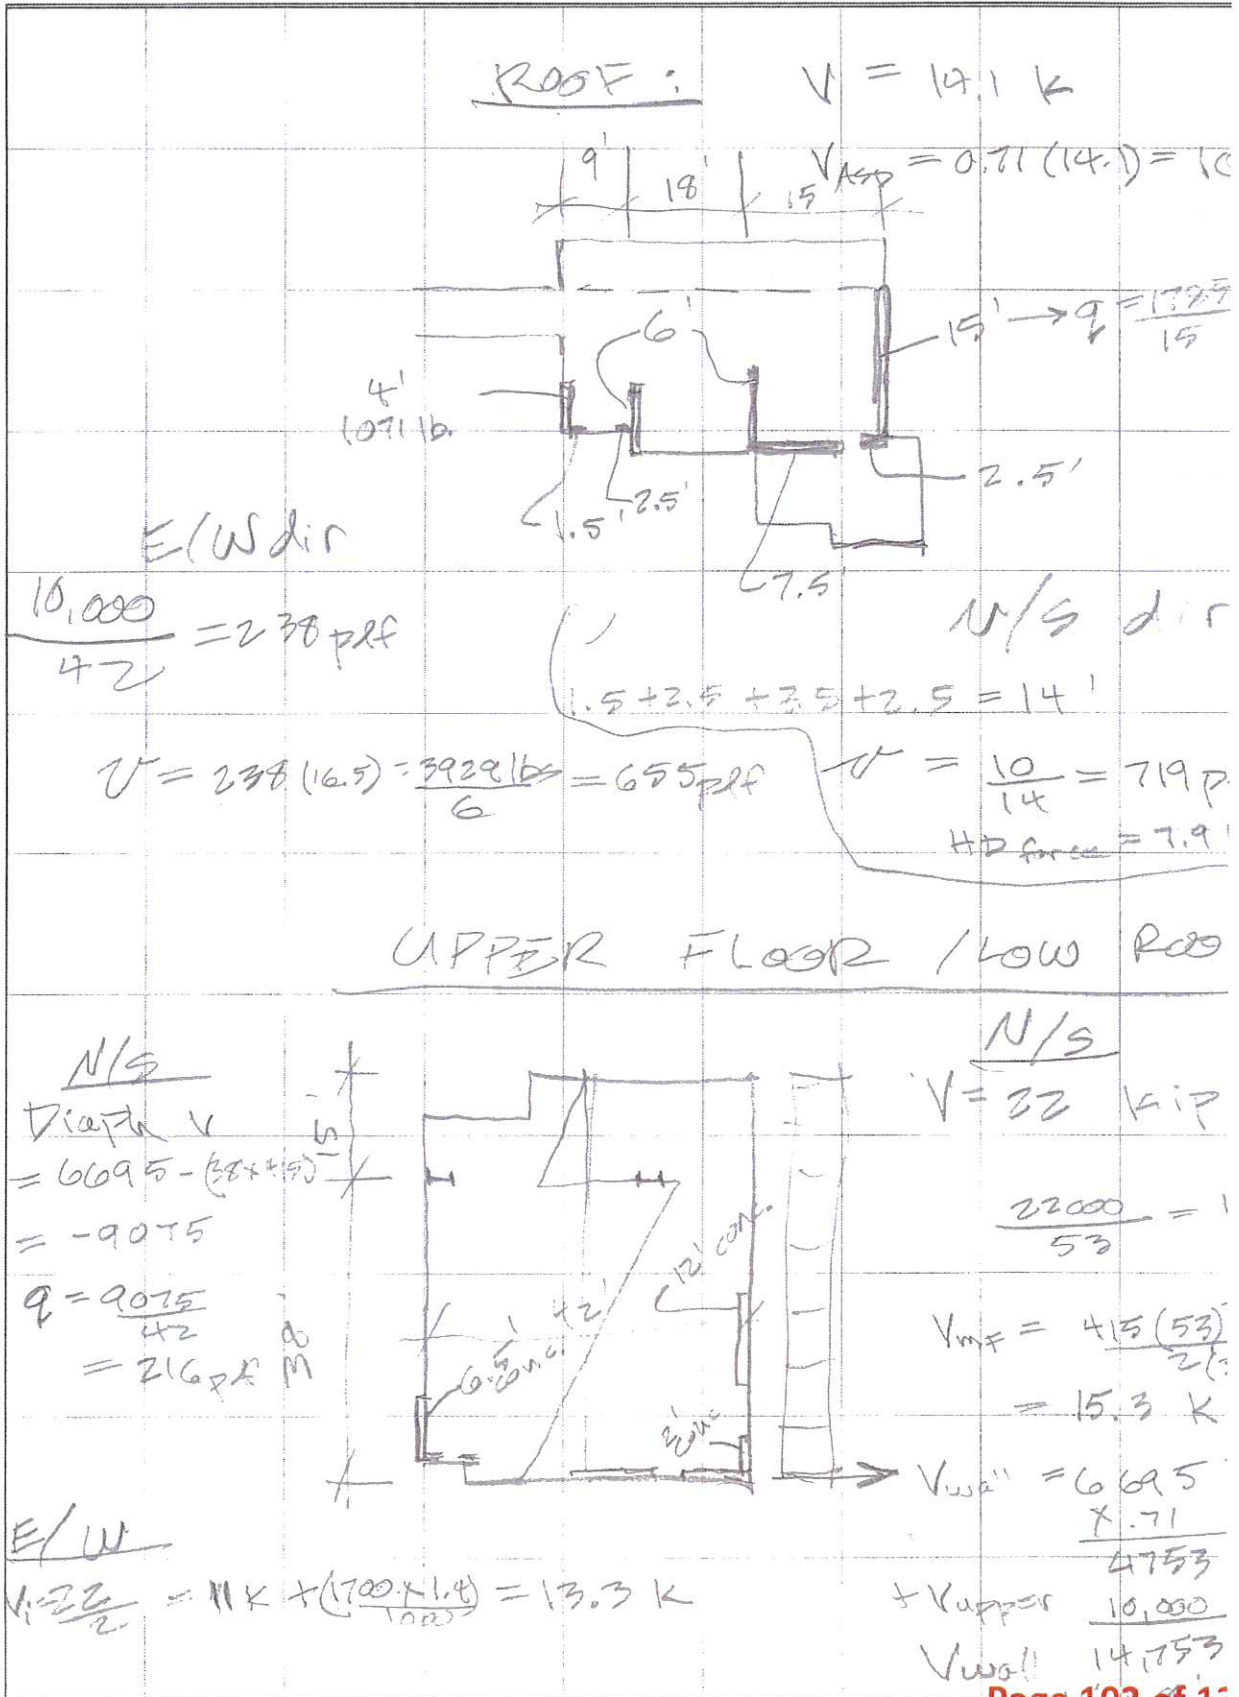 ROOF :
V = 14.1 k
V ASD = 0.71 (14.1) = 10
9'
18'
15'
6'
15' → q = 1785
15
4'
1071 lb.
1.5'
2.5'
2.5'
7.5'
E/W dir
10,000
42
= 238 plf
N/S dir
1.5 + 2.5 + 7.5 + 2.5 = 14'
v = 238 (16.5) = 3929 lbs = 655 plf
6
v = 10 = 719 p
14
HD force = 7.9
UPPER FLOOR / LOW ROO
N/S
Diaph v
= 6695 - (38×415)
= -9075
q = 9075
42
= 216 plf
15'
38'
42'
6.5' conc.
12' conc.
3' conc
N/S
V = 22 kip
22000 =
53
V mf = 415 (53)
2(
= 15.3 K
V wall = 6695
x .71
4753
+ V upper 10,000
V wall 14,753
E/W
V1 = 22 = 11 k + (1700 x 1.4) = 13.3 k
2
1000
Page 102 of 1